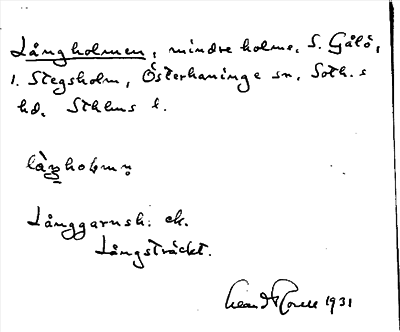 Långholmen, mindre holme, S. Gålö,
1. Stegsholm, Österhaninge sn, Soth.s
hd. Sthlms l.
låŋhoḷmn̥
Långgarnsh: ek.
Långsträckt.
1931